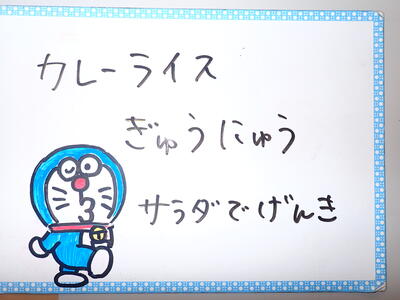 カレーライス
ぎゅうにゅう
サラダでげんき